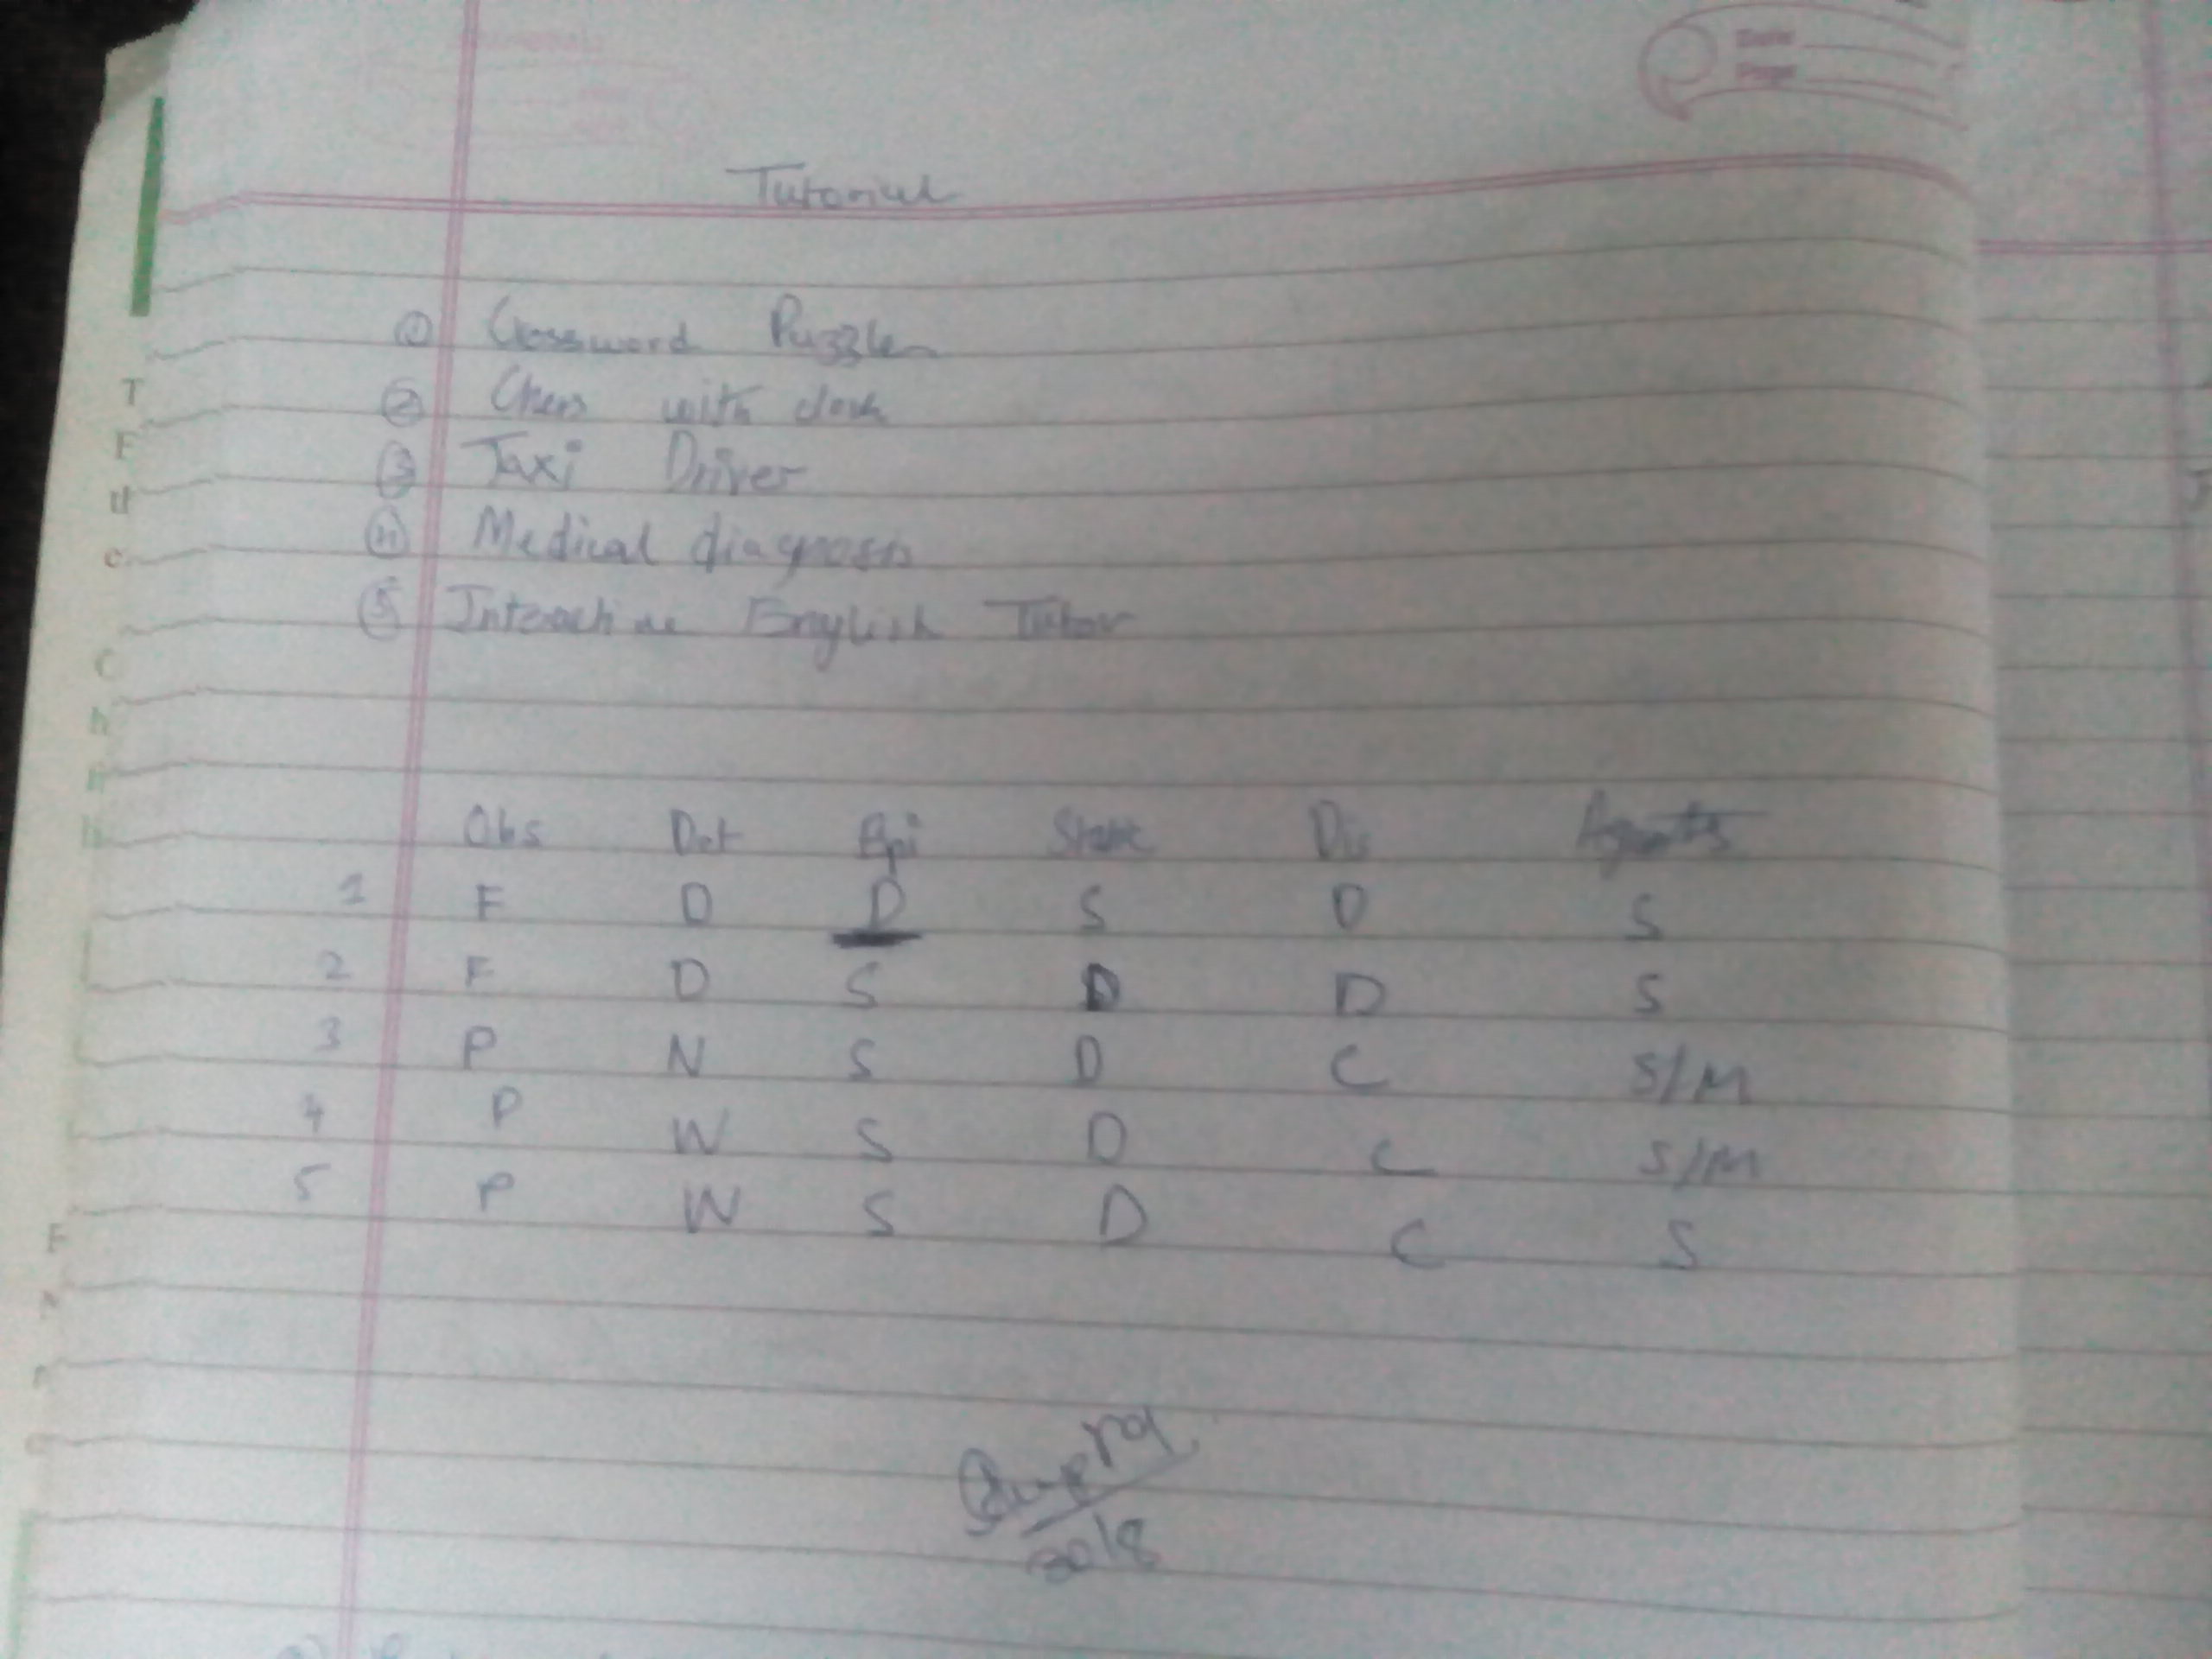 Date
Page
Tutorial
① Crossword Puzzle
② Chess with clock
③ Taxi Driver
④ Medical diagnosis
⑤ Interactive English Tutor
Obs Det Epi State Dis Agents
1 F D D S D S
2 F D S D D S
3 P N S D C S/M
4 P W S D C S/M
5 P W S D C S